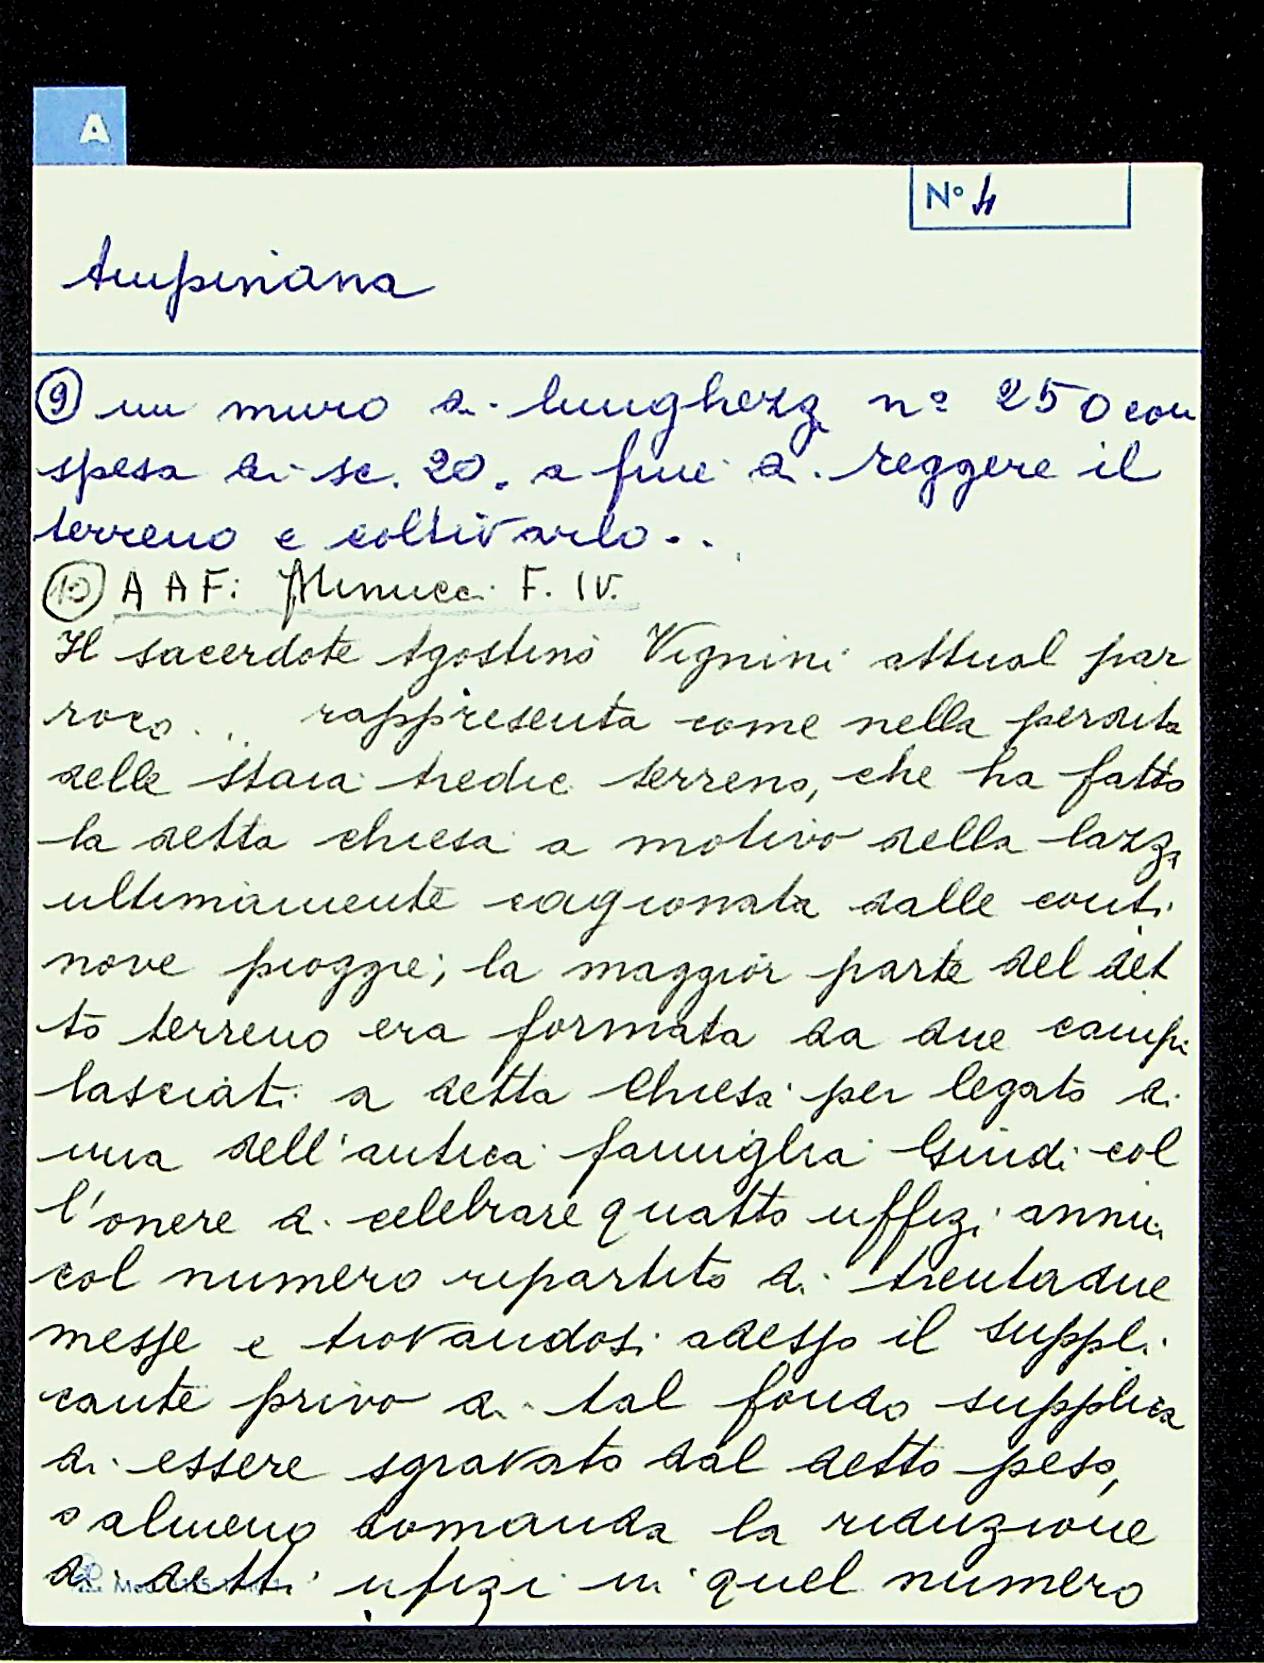 A
N° 4
Ampinana
⑨ un muro di lunghezza n° 250 con
spesa di sc. 20. a fine di reggere il
terreno e coltivarlo...
⑩ A A F: Minucci F. IV.
Il sacerdote Agostino Vignini attual par
roco... rappresenta come nella perdita
delle staia tredic terreno, che ha fatto
la detta chiesa a motivo della lazza
ultimamente cagionata dalle conti
nove piogge; la maggior parte del det
to terreno era formata da due campi
lasciati a detta Chiesa per legato di
una dell'antica famiglia Guidi col
l'onere di celebrare quatto uffizi annui
col numero ripartito di trentadue
messe e trovandosi adesso il suppli
cante privo di tal fondo supplica
di essere sgravato dal detto peso,
o almeno domanda la riduzione
di detti ufizi in quel numero